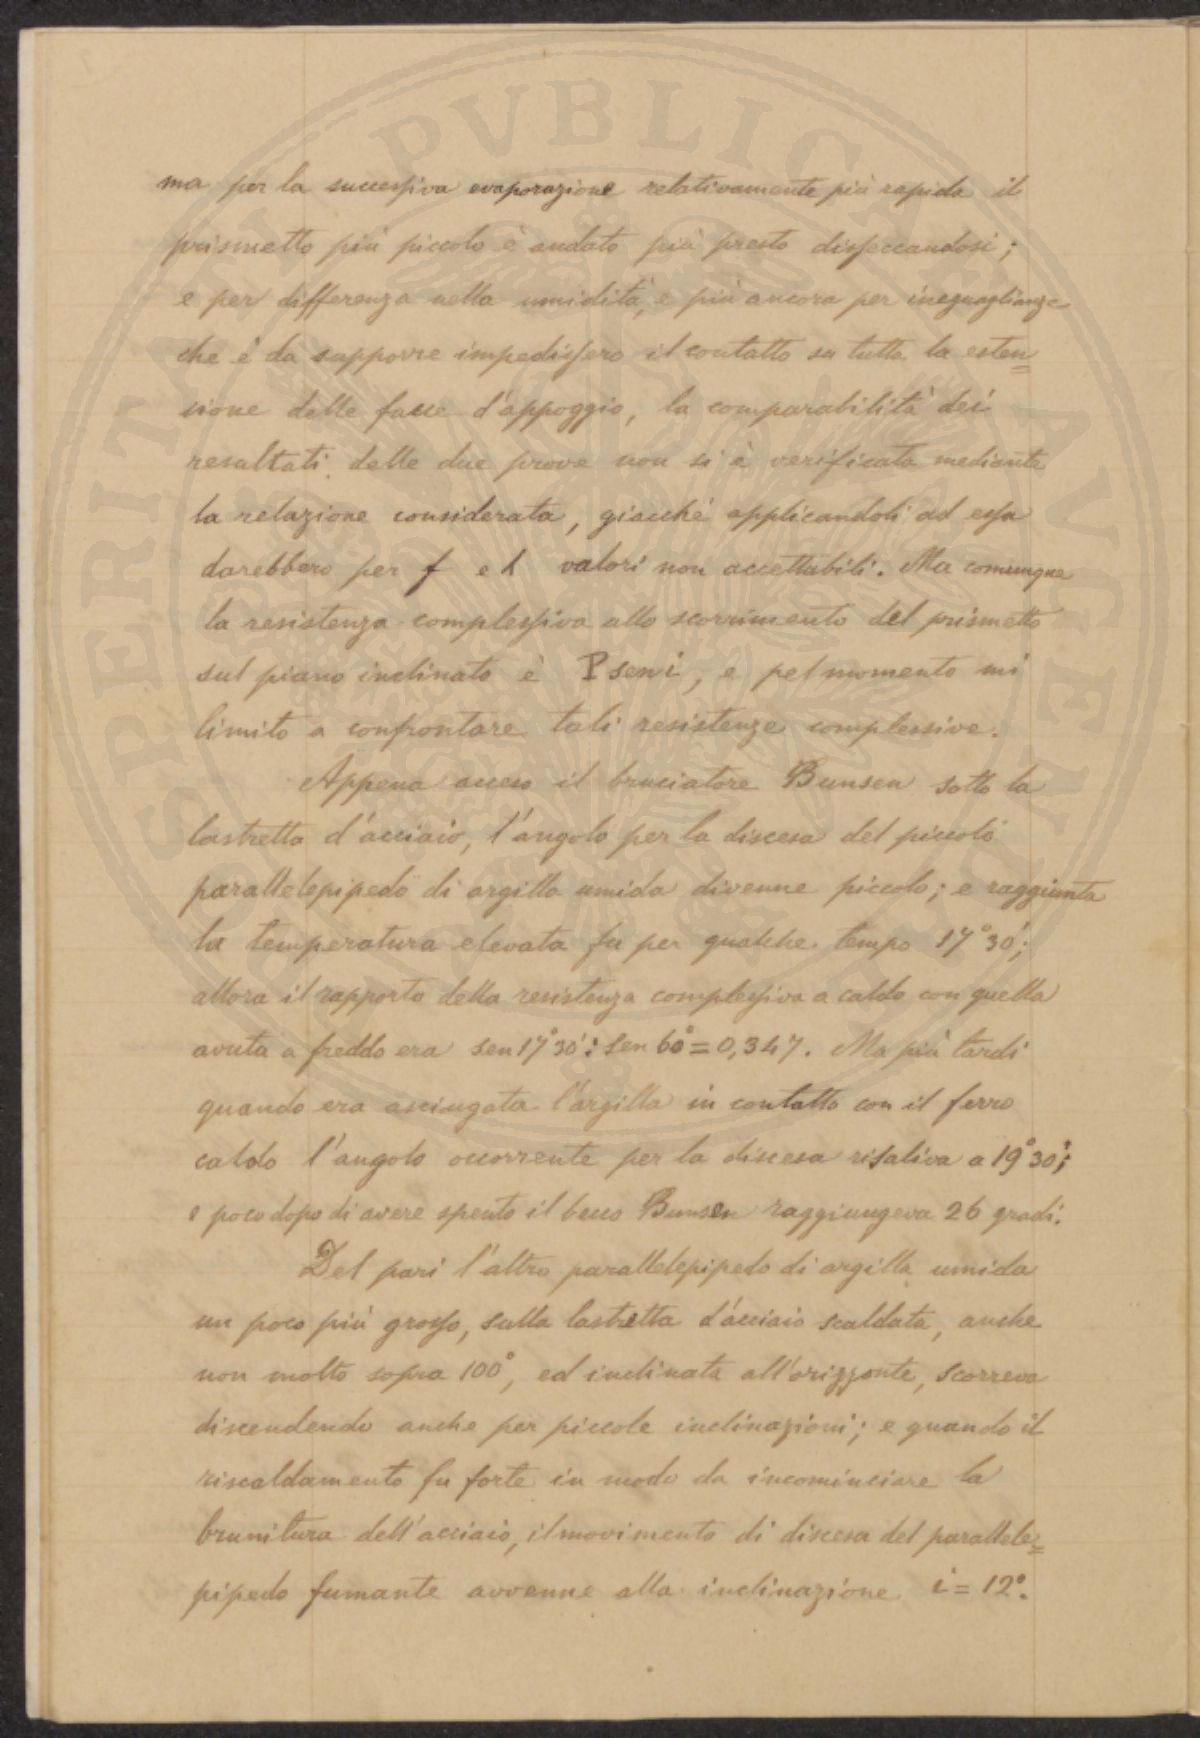 ma per la successiva evaporazione relativamente più rapida il
prismetto più piccolo è andato più presto disseccandosi;
e per differenza nella umidità, e più ancora per ineguaglianze
che è da supporre impedissero il contatto su tutta la esten=
sione delle facce d'appoggio, la comparabilità dei
resultati delle due prove non si è verificata mediante
la relazione considerata, giacchè applicandoli ad essa
darebbero per f e l valori non accettabili. Ma comunque
la resistenza complessiva allo scorrimento del prismetto
sul piano inclinato è P sen i, e pel momento mi
limito a confrontare tali resistenze complessive.
Appena acceso il bruciatore Bunsen sotto la
lastretta d'acciaio, l'angolo per la discesa del piccolo
parallelepipedo di argilla umida divenne piccolo; e raggiunta
la temperatura elevata fu per qualche tempo 17°30';
allora il rapporto della resistenza complessiva a caldo con quella
avuta a freddo era sen 17°30' : sen 60° = 0,347. Ma più tardi
quando era asciugata l'argilla in contatto con il ferro
caldo l'angolo occorrente per la discesa risaliva a 19°30';
e poco dopo di avere spento il becco Bunsen raggiungeva 26 gradi.
Del pari l'altro parallelepipedo di argilla umida
un poco più grosso, sulla lastretta d'acciaio scaldata, anche
non molto sopra 100°, ed inclinata all'orizzonte, scorreva
discendendo anche per piccole inclinazioni; e quando il
riscaldamento fu forte in modo da incominciare la
brunitura dell'acciaio, il movimento di discesa del parallele=
pipedo fumante avvenne alla inclinazione i = 12°.
PVBLICA
AVCENDAE
PROSPERITATI